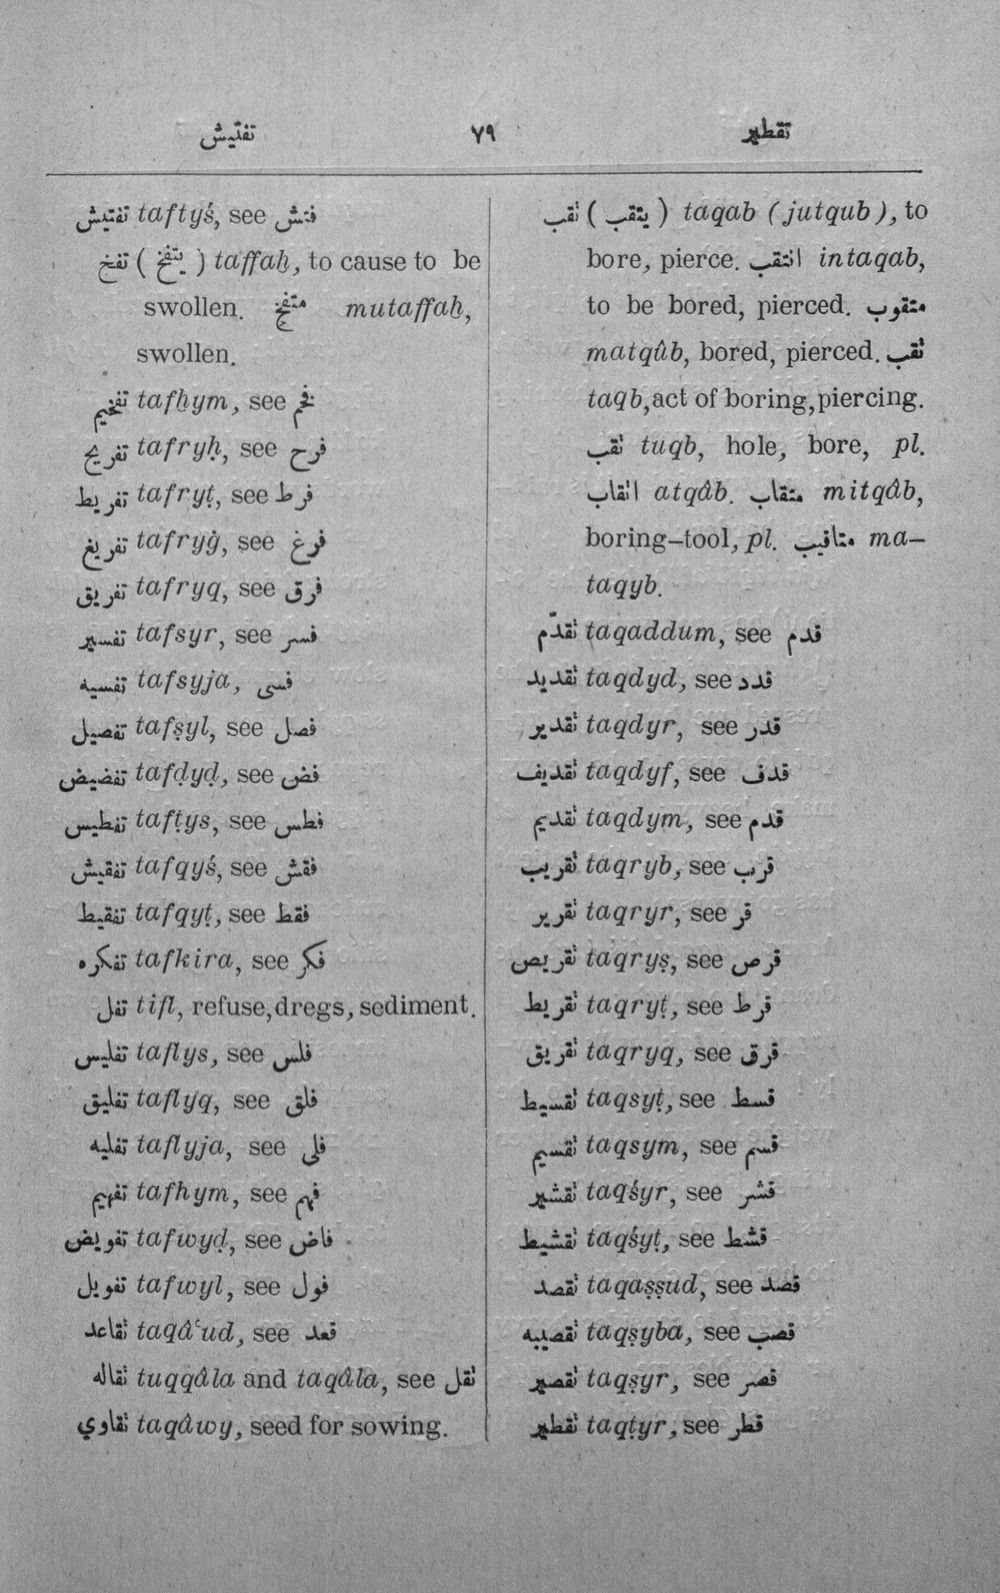 تفتيش ٧٩ تقطير
تفتيش taftyś, see فتش
تفخ ( يتفخ ) taffaẖ, to cause to be
swollen. متفخ mutaffaẖ,
swollen.
تفخيم tafẖym, see فخم
تفريح tafryḥ, see فرح
تفريط tafryṭ, see فرط
تفريغ tafryġ, see فرغ
تفريق tafryq, see فرق
تفسير tafsyr, see فسر
تفسيه tafsyja, فسى
تفصيل tafṣyl, see فصل
تفضيض tafḍyḍ, see فض
تفطيس tafṭys, see فطس
تفقيش tafqyś, see فقش
تفقيط tafqyṭ, see فقط
تفكره tafkira, see فكر
تفل tifl, refuse, dregs, sediment.
تفليس taflys, see فلس
تفليق taflyq, see فلق
تفليه taflyja, see فلى
تفهيم tafhym, see فهم
تفويض tafwyḍ, see فاض
تفويل tafwyl, see فول
تقاعد taqâʿud, see قعد
تقاله tuqqâla and taqâla, see ثقل
تقاوي taqâwy, seed for sowing.
تقب ( يتقب ) taqab (jutqub), to
bore, pierce. انتقب intaqab,
to be bored, pierced. متقوب
matqûb, bored, pierced. تقب
taqb, act of boring, piercing.
تقب tuqb, hole, bore, pl.
اتقاب atqâb. متقاب mitqâb,
boring-tool, pl. متاقيب ma-
taqyb.
تقدّم taqaddum, see قدم
تقديد taqdyd, see قدد
تقدير taqdyr, see قدر
تقديف taqdyf, see قدف
تقديم taqdym, see قدم
تقريب taqryb, see قرب
تقرير taqryr, see قر
تقريص taqryṣ, see قرص
تقريط taqryṭ, see قرط
تقريق taqryq, see قرق
تقسيط taqsyṭ, see قسط
تقسيم taqsym, see قسم
تقشير taqśyr, see قشر
تقشيط taqśyṭ, see قشط
تقصد taqaṣṣud, see قصد
تقصيبه taqṣyba, see قصب
تقصير taqṣyr, see قصر
تقطير taqṭyr, see قطر